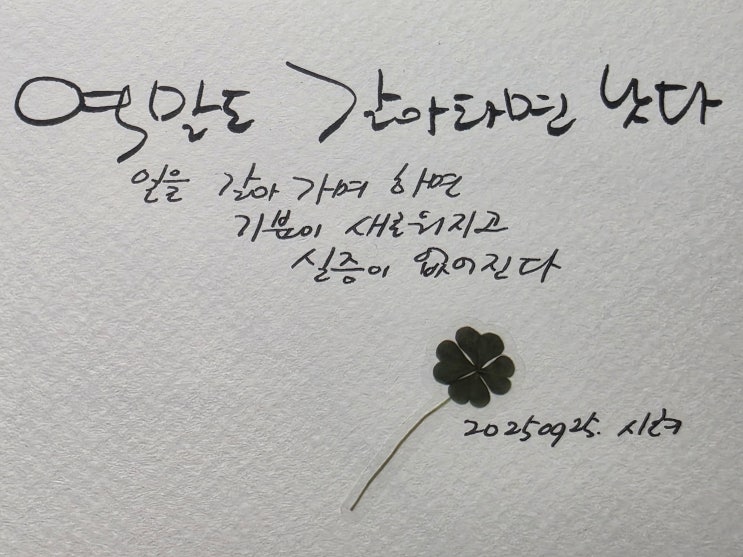 역말도 갈아타면 낫다
일을 갈아 가며 하면
기분이 새로워지고
실증이 없어진다
20250925.